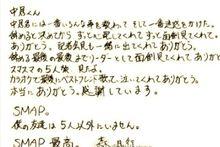 中居くん
中居君には一番いろんな事を教わって そして一番迷惑をかけた。
辞めると決めてから ずっと心配してくれて ずっと面倒見てくれて。
ありがとう。記者会見も一緒に出てくれてありがとう。
辞める最後の最後までリーダーとして面倒見てくれてありがとう。
スマスマの5人旅 見たよ。
カラオケで最後にベストフレンド歌って、泣いてくれてありがとう。
本当にありがとう。感謝しています。
SMAP。
僕の友達は5人以外にいません。
SMAP 最高。 森且行